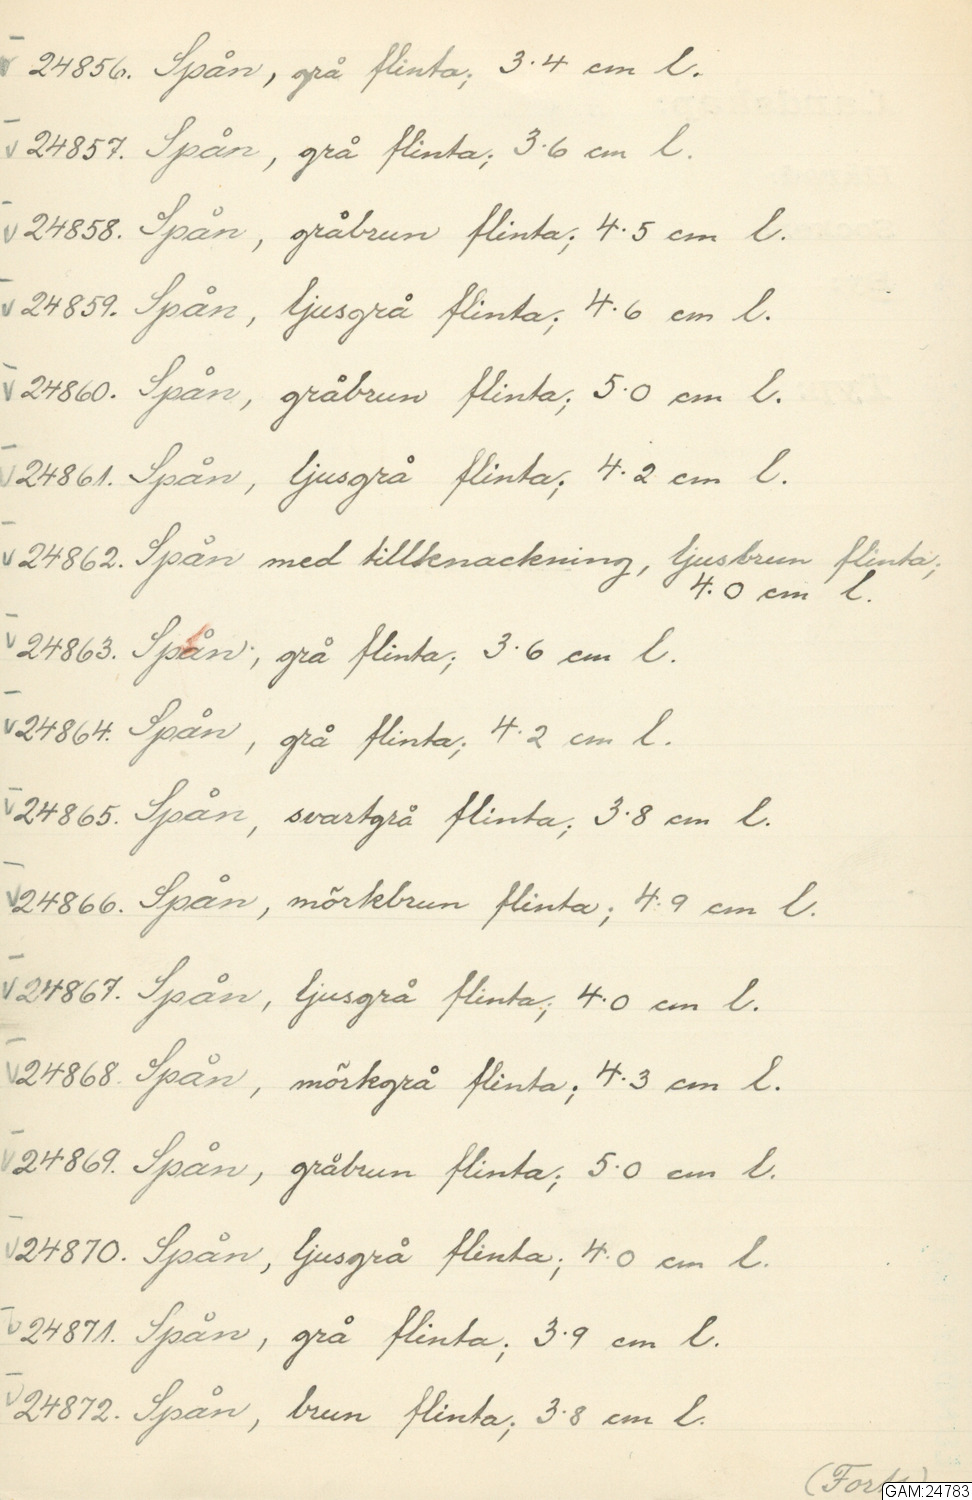 v 24856. Spån, grå flinta; 3.4 cm l.
v 24857. Spån, grå flinta; 3.6 cm l.
v 24858. Spån, gråbrun flinta; 4.5 cm l.
v 24859. Spån, ljusgrå flinta; 4.6 cm l.
v 24860. Spån, gråbrun flinta; 5.0 cm l.
v 24861. Spån, ljusgrå flinta; 4.2 cm l.
v 24862. Spån med tillknackning, ljusbrun flinta;
4.0 cm l.
v 24863. Spån, grå flinta; 3.6 cm l.
v 24864. Spån, grå flinta; 4.2 cm l.
v 24865. Spån, svartgrå flinta; 3.8 cm l.
v 24866. Spån, mörkbrun flinta; 4.9 cm l.
v 24867. Spån, ljusgrå flinta; 4.0 cm l.
v 24868. Spån, mörkgrå flinta; 4.3 cm l.
v 24869. Spån, gråbrun flinta; 5.0 cm l.
v 24870. Spån, ljusgrå flinta; 4.0 cm l.
v 24871. Spån, grå flinta; 3.9 cm l.
v 24872. Spån, brun flinta; 3.8 cm l.
(Forts)
GAM:24783